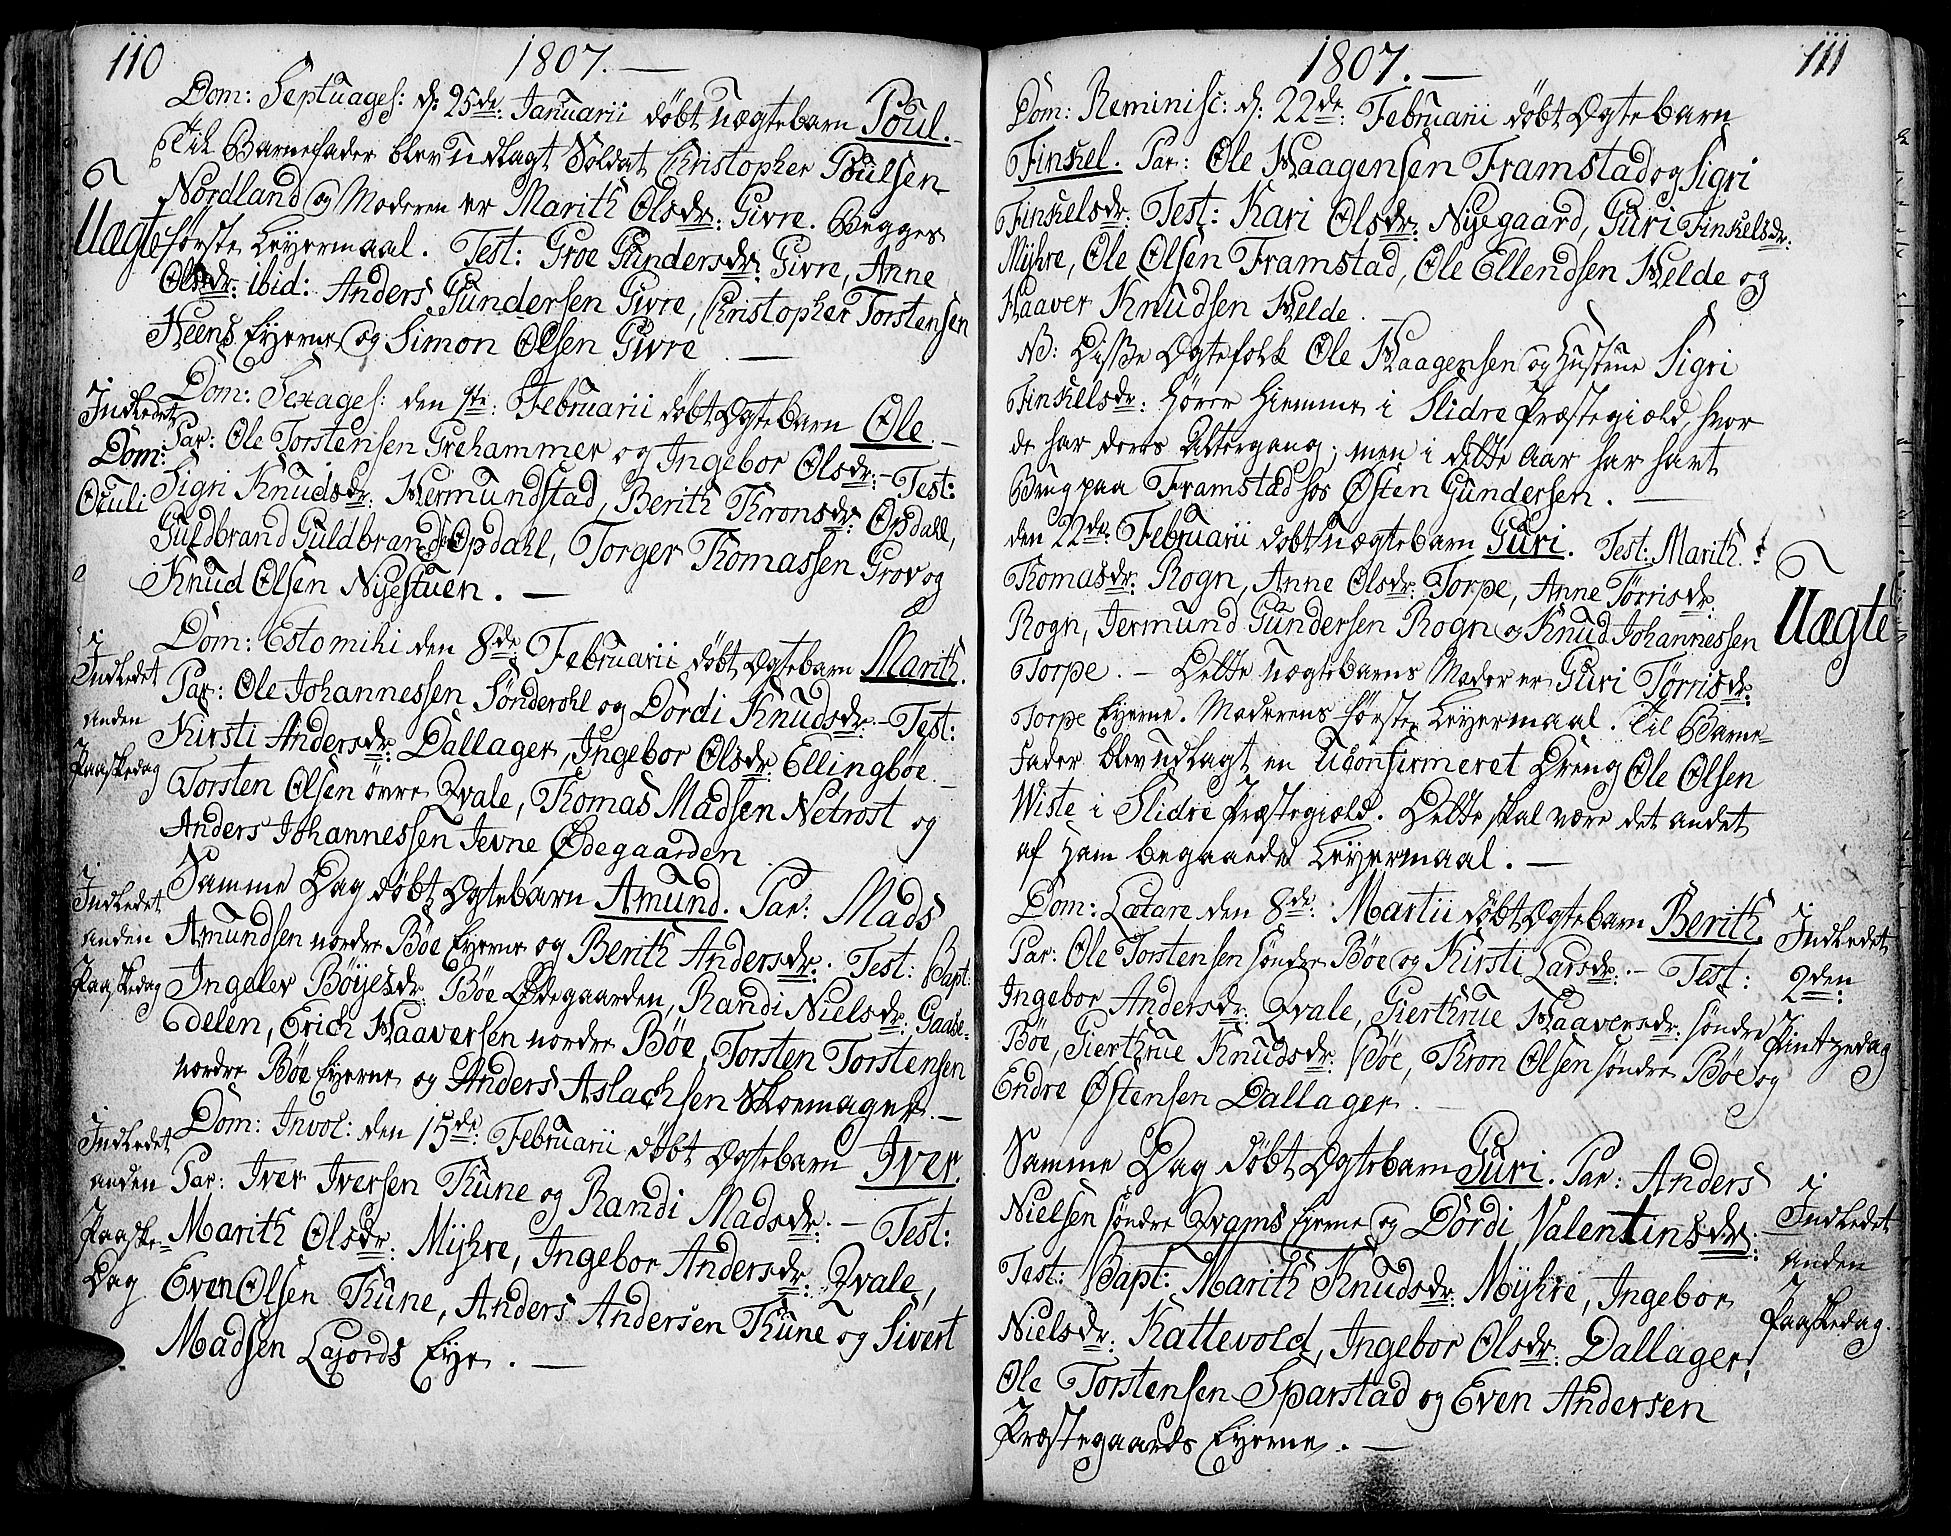 110
1807. —
Dom: Septuages: d: 25de: Januarii döbt Uægtebarn Poul. -
Til Barnefader blev Udlagt Soldat Christopher Poulsen
Nordland og Moderen er Marith Olsdr: Givre. Begges
Uægte
første Leyermaal. Test: Groe Gundersdr: Givre, Anne
Olsdr: ibid: Anders Gundersen Givre, Christopher Torstensen
Heens Eyerne og Simon Olsen Givre. —
Dom: Sexages: den 1ste: Februarii döbt Ægtebarn Ole. -
Indledet
Dom:
Oculi
Par: Ole Torstensen Grehammer og Ingebor Olsdr: - Test:
Sigri Knudsdr: Hermundstad, Berith Thronsdr: Opdahl,
Guldbrand Guldbrandsen Opdahl, Torger Thomassen Grov og
Knud Olsen Nyestuen. —
Dom: Estomihi den 8de Februarii döbt Ægtebarn Marith.
Indledet
anden
Paaskedag
Par: Ole Johannessen Sönderohl og Dordi Knudsdr: - Test:
Kirsti Andersdr: Dallager, Ingebor Olsdr: Ellingböe -
Torsten Olsen övre Qvale, Thomas Madsen Netrost og
Anders Johannessen Jevne Ödegaarden
Samme Dag döbt Ægtebarn Amund. Par: Mads
Indledet
anden
Paaskedag
Amundsen nordre Böe Eyerne og Berith Andersdr: . Test: Bapt:
Ingelev Böyesdr: Böe Ödegaarden, Randi Nielsdr: Gaase-
Edelen, Erich Haaversen nordre Böe, Torsten Torstensen
nordre Böe Eyerne og Anders Aslachsen Skoemager. —
Dom: Invoc: den 15de: Februarii döbt Ægtebarn Iver.
Indledet
anden
Paaske-
Dag
Par: Iver Iversen Thune og Randi Madsdr: . - Test:
Marith Olsdr: Myhre, Ingebor Andersdr: Qvale,
Even Olsen Thune, Anders Andersen Thune og Sivert
Madsen Lajords Eye. —
111
1807. —
Dom: Reminisc: d: 22de: Februarii döbt Ægtebarn
Finkel. Par: Ole Haagensen Framstad og Sigri
Finkelsdr: Test: Kari Olsdr: Nyegaard, Guri Finkelsdr:
Myhre, Ole Olsen Framstad, Ole Ellendsen Helde og
Haaver Knudsen Helde. —
NB: Disse Ægtefolk Ole Haagensen og Hustrue Sigri
Finkelsdr: hörer hiemme i Slidre Præstegiæld, hvor
de har deres Altergang; men i dette Aar har havt
Brug paa Framstad hos Östen Gundersen. —
den 22de: Februarii döbt Uægtebarn Guri. Test: Marith
Uægte
Thomasdr: Rogn, Anne Olsdr: Torpe, Anne Törrisdr:
Rogn, Jermund Gundersen Rogn og Knud Johannessen
Torpe. - Dette Uægtebarns Moder er Guri Törrisdr:
Torpe Eyerne. Moderens første Leyermaal. Til Barne-
fader blev Udlagt en Uconfirmeret Dreng Ole Olsen
Wiste i Slidre Præstegiæld. Dette skal være det andet
af ham begaaede Leyermaal. —
Dom: Lætare den 8de: Martii döbt Ægtebarn Berith.
Indledet
2den
Pintzedag
Par: Ole Torstensen söndre Böe og Kirsti Larsdr: . - Test:
Ingebor Andersdr: Qvale, Gierthrue Haaversdr: söndre
Böe, Gierthrue Knudsdr: Böe, Thron Olsen söndre Böe og
Endre Östensen Dallager. —
Samme Dag döbt Ægtebarn Guri. Par: Anders
Indledet
anden
Paaskedag.
Nielsen söndre Qvams Eyerne og Dordi Valentinsdr:
Test: Bapt: Marith Knudsdr: Myhre, Ingebor
Nielsdr: Kattevold, Ingebor Olsdr: Dallager,
Ole Torstensen Sparstad og Even Andersen
Præstegaards Eyerne. —